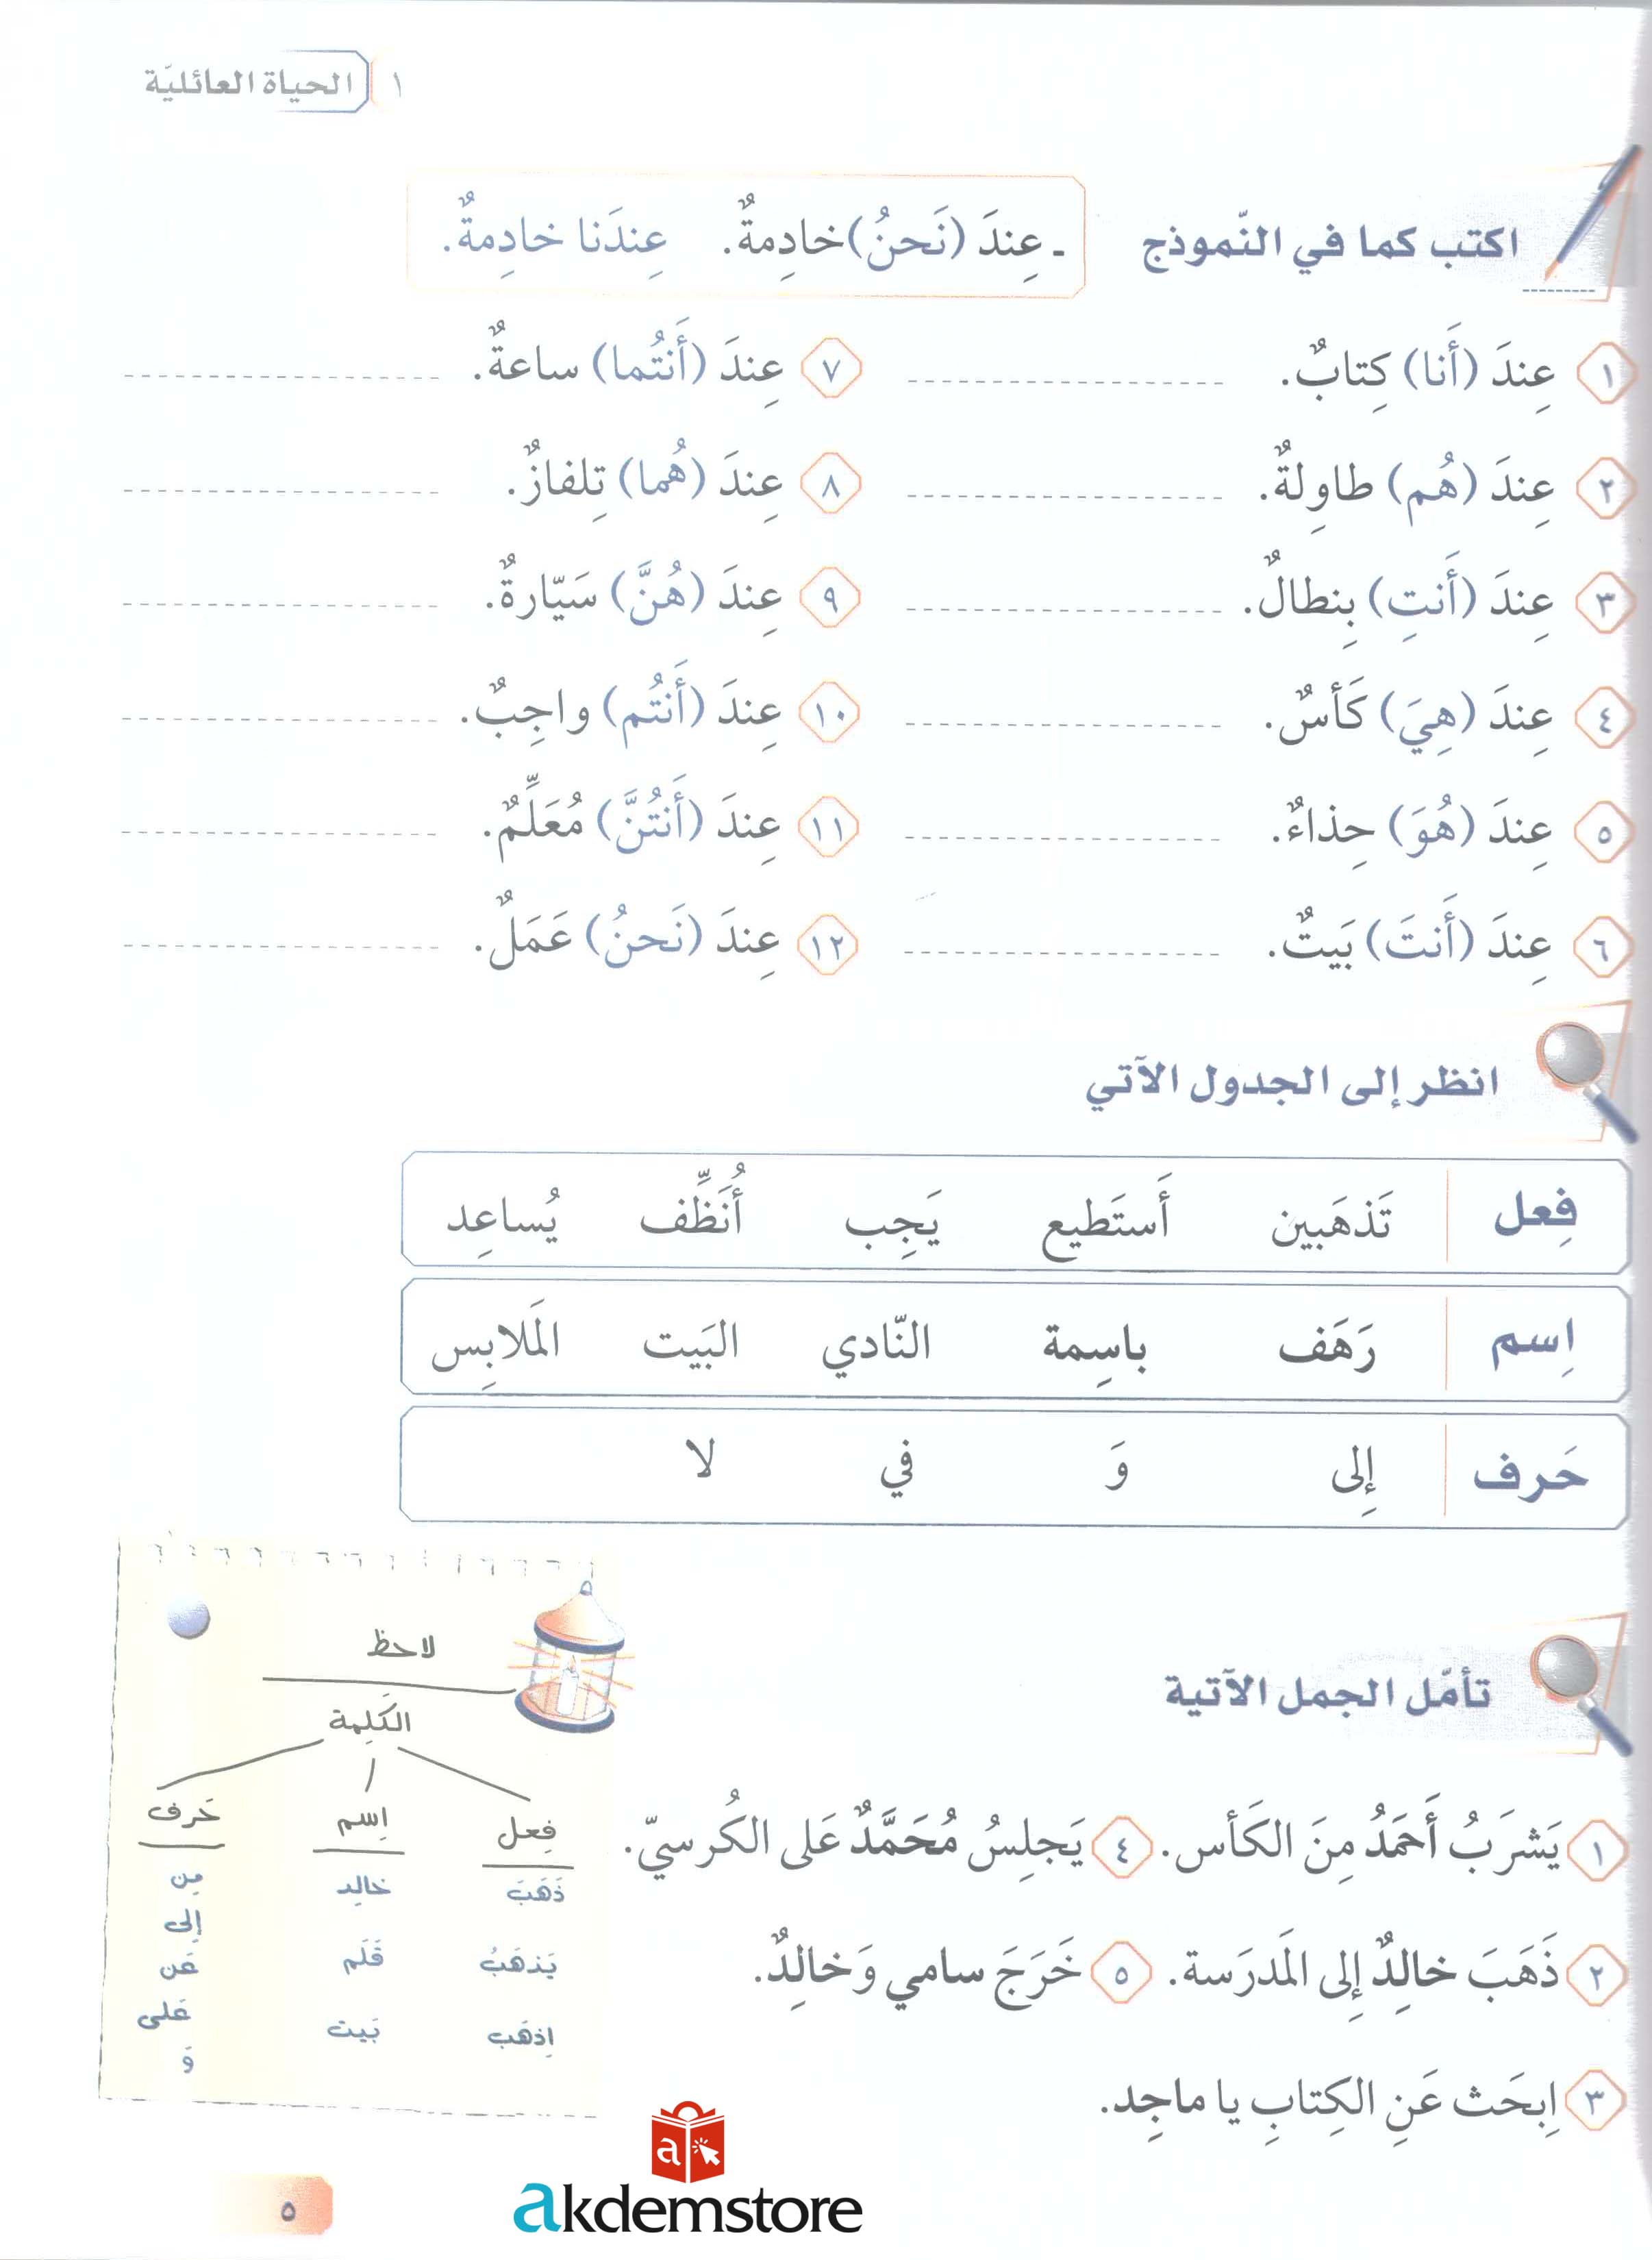 ١ الحياة العائليّة
اكتب كما في النّموذج
ـ عِندَ (نَحنُ) خادِمةٌ. عِندَنا خادِمةٌ.
١ عِندَ (أَنا) كِتابٌ.
٢ عِندَ (هُم) طاوِلةٌ.
٣ عِندَ (أَنتِ) بِنطالٌ.
٤ عِندَ (هِيَ) كَأسٌ.
٥ عِندَ (هُوَ) حِذاءٌ.
٦ عِندَ (أَنتَ) بَيتٌ.
٧ عِندَ (أَنتُما) ساعةٌ.
٨ عِندَ (هُما) تِلفازٌ.
٩ عِندَ (هُنَّ) سَيّارةٌ.
١٠ عِندَ (أَنتُم) واجِبٌ.
١١ عِندَ (أَنتُنَّ) مُعَلِّمٌ.
١٢ عِندَ (نَحنُ) عَمَلٌ.
انظر إلى الجدول الآتي
فِعل تَذهَبين أَستَطيع يَجِب أُنَظِّف يُساعِد
اِسم رَهَف باسِمة النّادي البَيت المَلابِس
حَرف إِلى وَ في لا
تأمّل الجمل الآتية
١ يَشرَبُ أَحمَدُ مِنَ الكَأس.
٢ ذَهَبَ خالِدٌ إِلى المَدرَسة.
٣ اِبحَث عَنِ الكِتابِ يا ماجِد.
٤ يَجلِسُ مُحَمَّدٌ عَلى الكُرسيّ.
٥ خَرَجَ سامي وَخالِدٌ.
لاحظ
الكَلِمة
فِعل اِسم حَرف
ذَهَبَ خالِد مِن
إِلى
يَذهَبُ قَلَم عَن
اِذهَب بَيت عَلى
وَ
a
akdemstore
٥